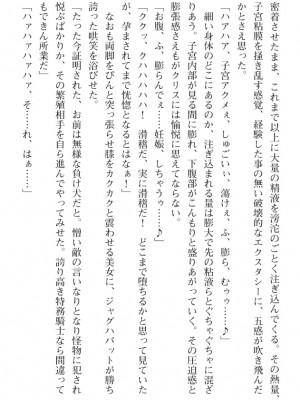 密着させたまま、これまで以上に大量の精液を滂沱のごとく注ぎ込んでくる。その熱量、
子宮粘膜を掻き乱す感覚、経験した事の無い破壊的なエクスタシーに、五感が吹き飛んだ
かとさえ思った。
「アハァ、子宮アクメぇ、しゅごいぃ、蕩けぇ、ふ、膨ら、むぅぅ……♪」
細い身体のどこにあるのか、注ぎ込まれる量は膨大で先の粘液らとぐちゃぐちゃに混ざ
りあう。子宮内部が見る間に膨れ、下腹部がこんもりと盛りあがっていく。その圧迫感と
膨張感さえもがクリスには愉悦に思えてならない。
「お腹、ふ、膨らんでぇ……妊娠、しちゃうぅ……♪」
「ククッ、クハハハハハ！　滑稽だ、実に滑稽だ！　どこまで堕ちるかと思って見ていた
が、孕まされてまで恍惚となるとはなぁ！」
なおも両脚をぴんと突っ張らせ膝をカクカクと震わせる美女に、ジャグハバットが勝ち
誇った哄笑を浴びせた。
「たった今証明された、お前は無様な負け犬だと。憎い敵の言いなりとなり怪物に犯され
悦ぶばかりか、その繁殖相手を自ら進んでやってみせた。誇り高き特務騎士なら間違って
もできん所業だ」
「ハァハァハァハァ、そ……れ、はぁ……」